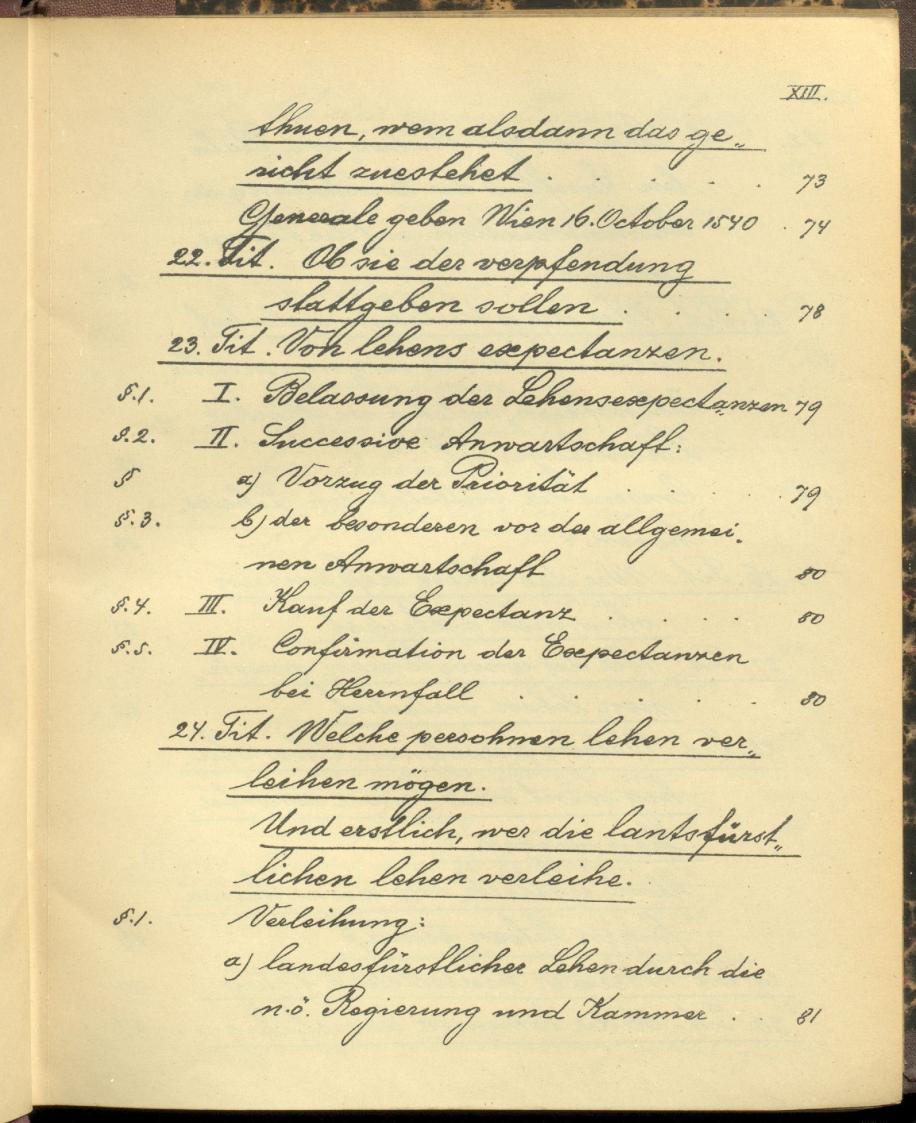 XIII.
thuen, wem alsdann das ge„
richt zuestehet . . . . . 73
Generale geben Wien 16. October 1540 . 74
22. Tit. Ob sie der verpfendung
stattgeben sollen . . . . 78
23. Tit. Von lehens expectanzen.
§.1. I. Belassung der Lehensexpectanzen 79
§.2. II. Successive Anwartschaft:
§ a) Vorzug der Priorität . . . . 79
§.3. b) der besonderen vor der allgemei„
nen Anwartschaft 80
§.4. III. Kauf der Expectanz . . . . 80
§.5. IV. Confirmation der Expectanzen
bei Herrnfall . . . . . 80
24. Tit. Welche persohnen lehen ver„
leihen mögen.
Und erstlich, wer die lantsfürst„
lichen lehen verleihe.
§.1. Verleihung:
a) landesfürstlicher Lehen durch die
n.ö. Regierung und Kammer . . 81